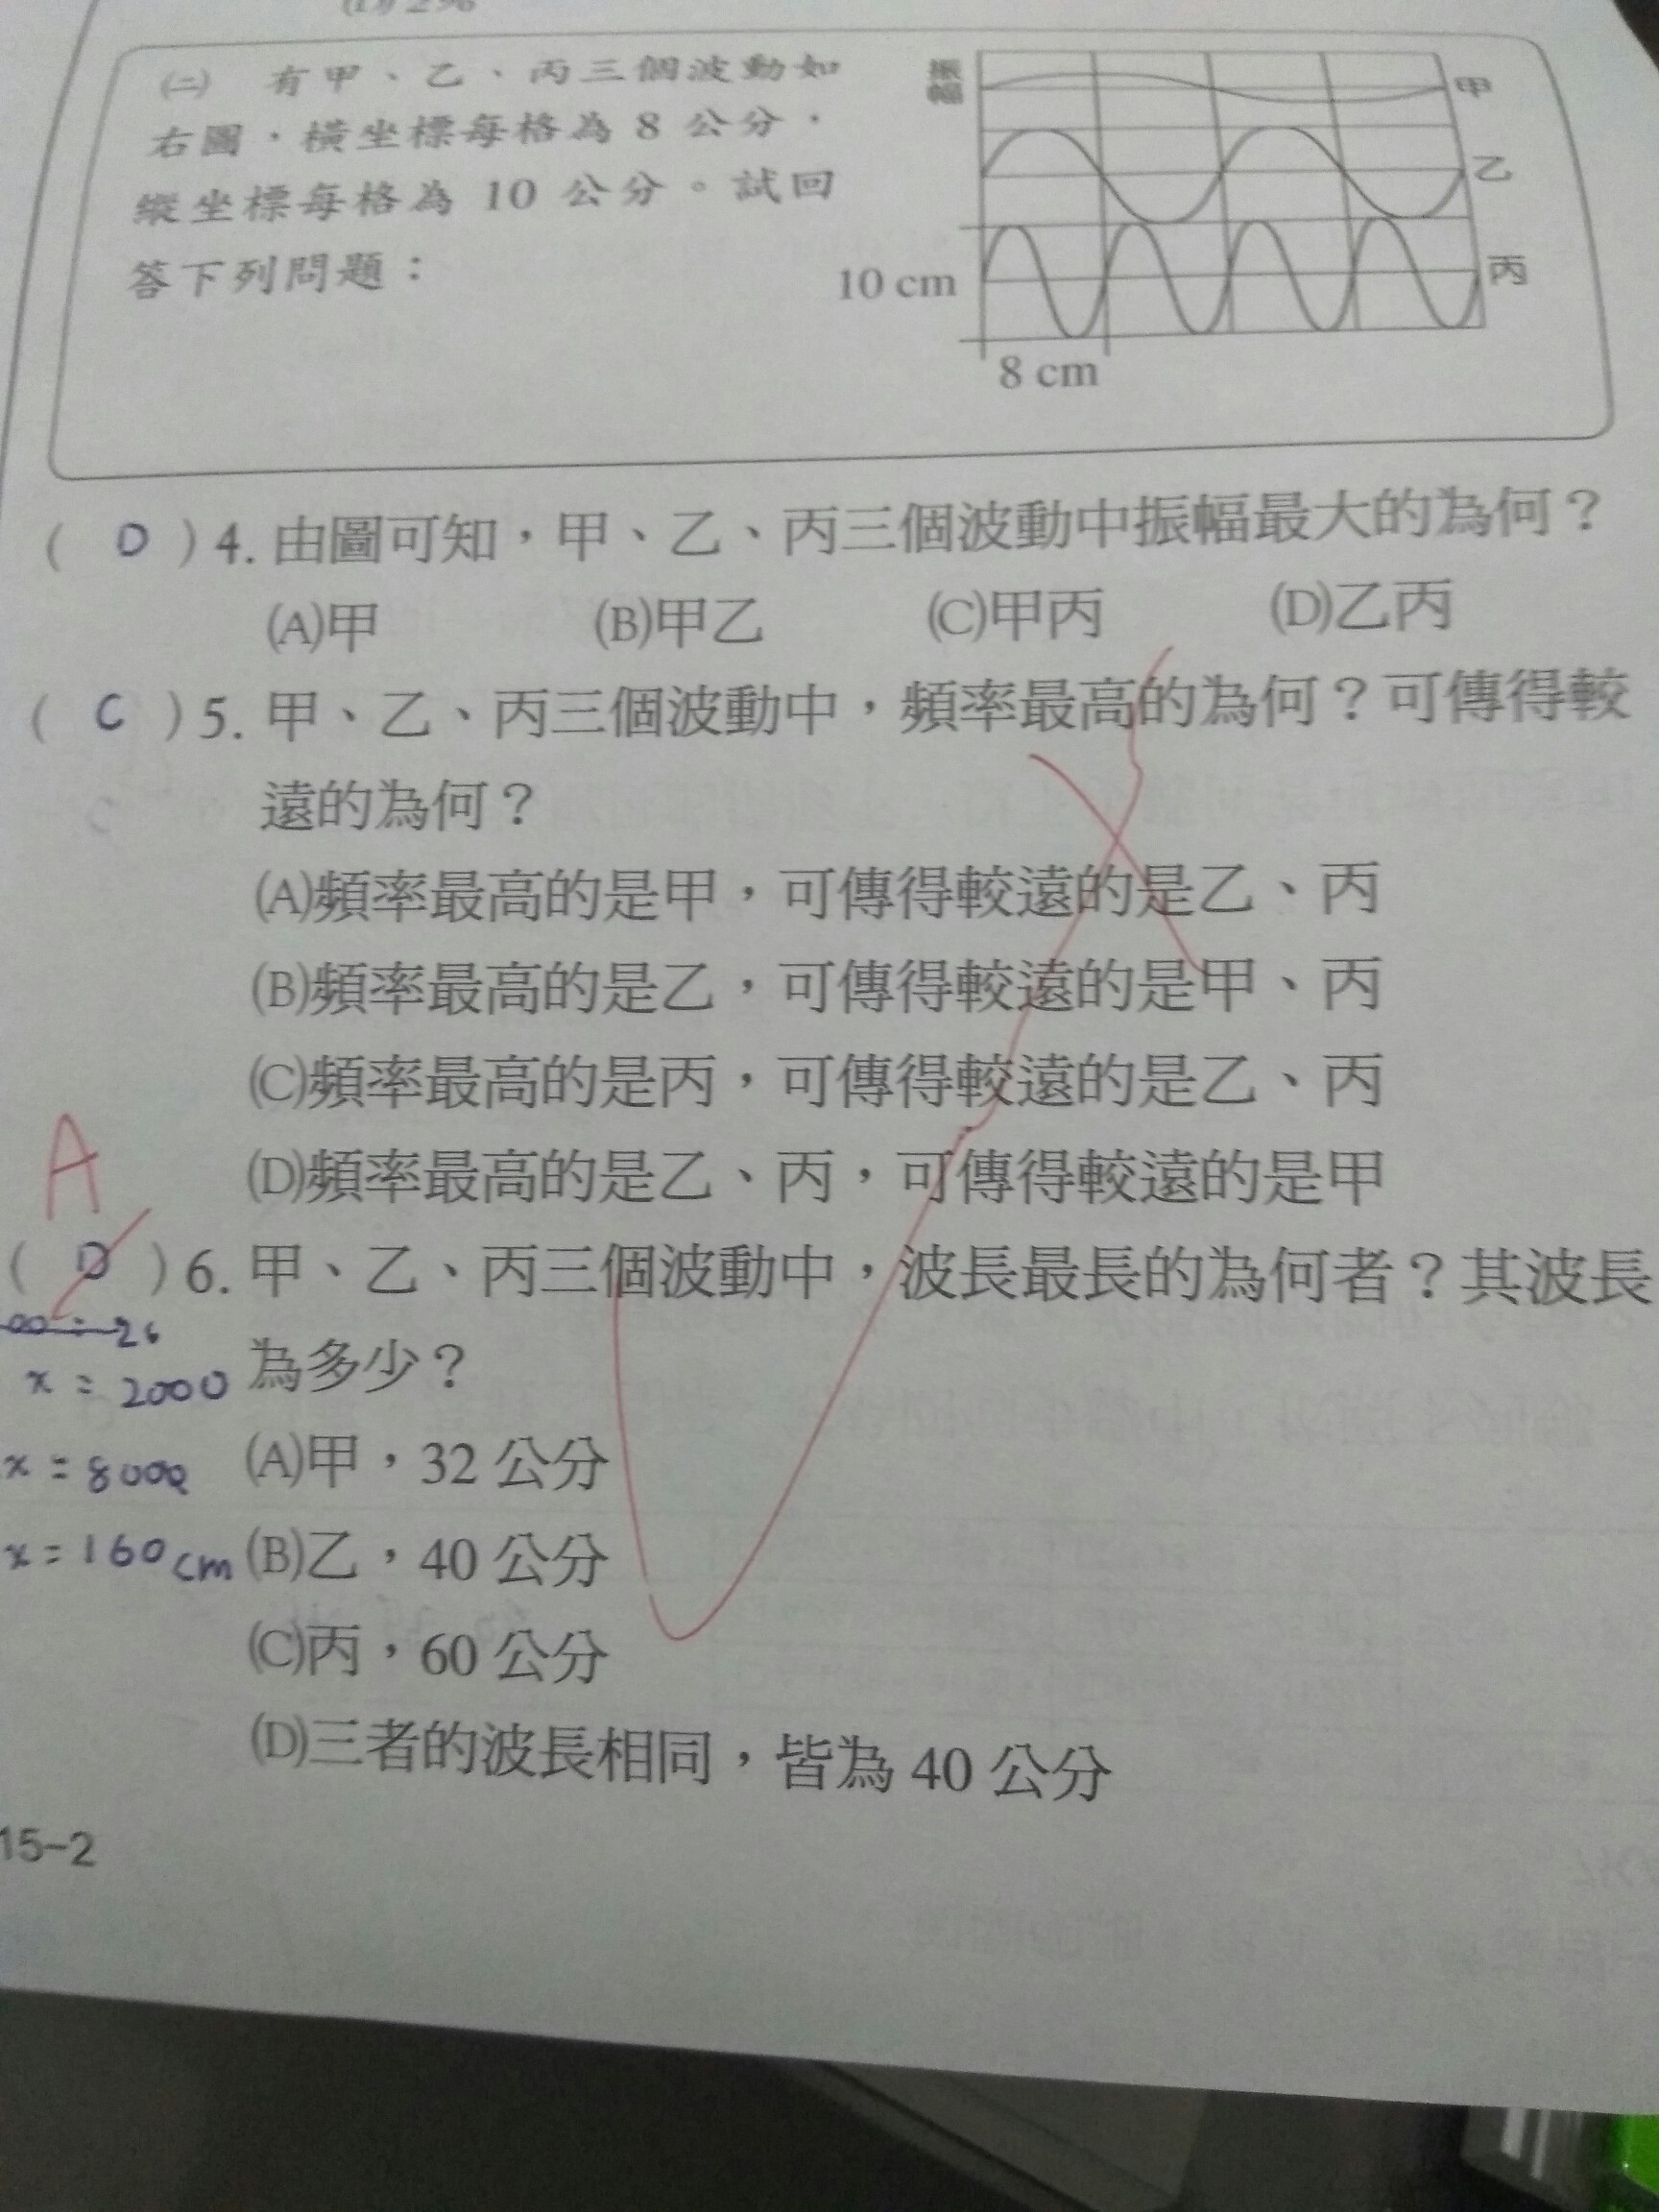 (D) 296
㈡ 有甲、乙、丙三個波動如
右圖，橫坐標每格為 8 公分，
縱坐標每格為 10 公分。試回
答下列問題：
振幅
甲
乙
丙
10 cm
8 cm
( D ) 4. 由圖可知，甲、乙、丙三個波動中振幅最大的為何？
(A)甲 (B)甲乙 (C)甲丙 (D)乙丙
( C ) 5. 甲、乙、丙三個波動中，頻率最高的為何？可傳得較
遠的為何？
(A)頻率最高的是甲，可傳得較遠的是乙、丙
(B)頻率最高的是乙，可傳得較遠的是甲、丙
(C)頻率最高的是丙，可傳得較遠的是乙、丙
(D)頻率最高的是乙、丙，可傳得較遠的是甲
A
( D ) 6. 甲、乙、丙三個波動中，波長最長的為何者？其波長
為多少？
x = 2000
(A)甲，32 公分
x = 8000
(B)乙，40 公分
x = 160 cm
(C)丙，60 公分
(D)三者的波長相同，皆為 40 公分
15-2